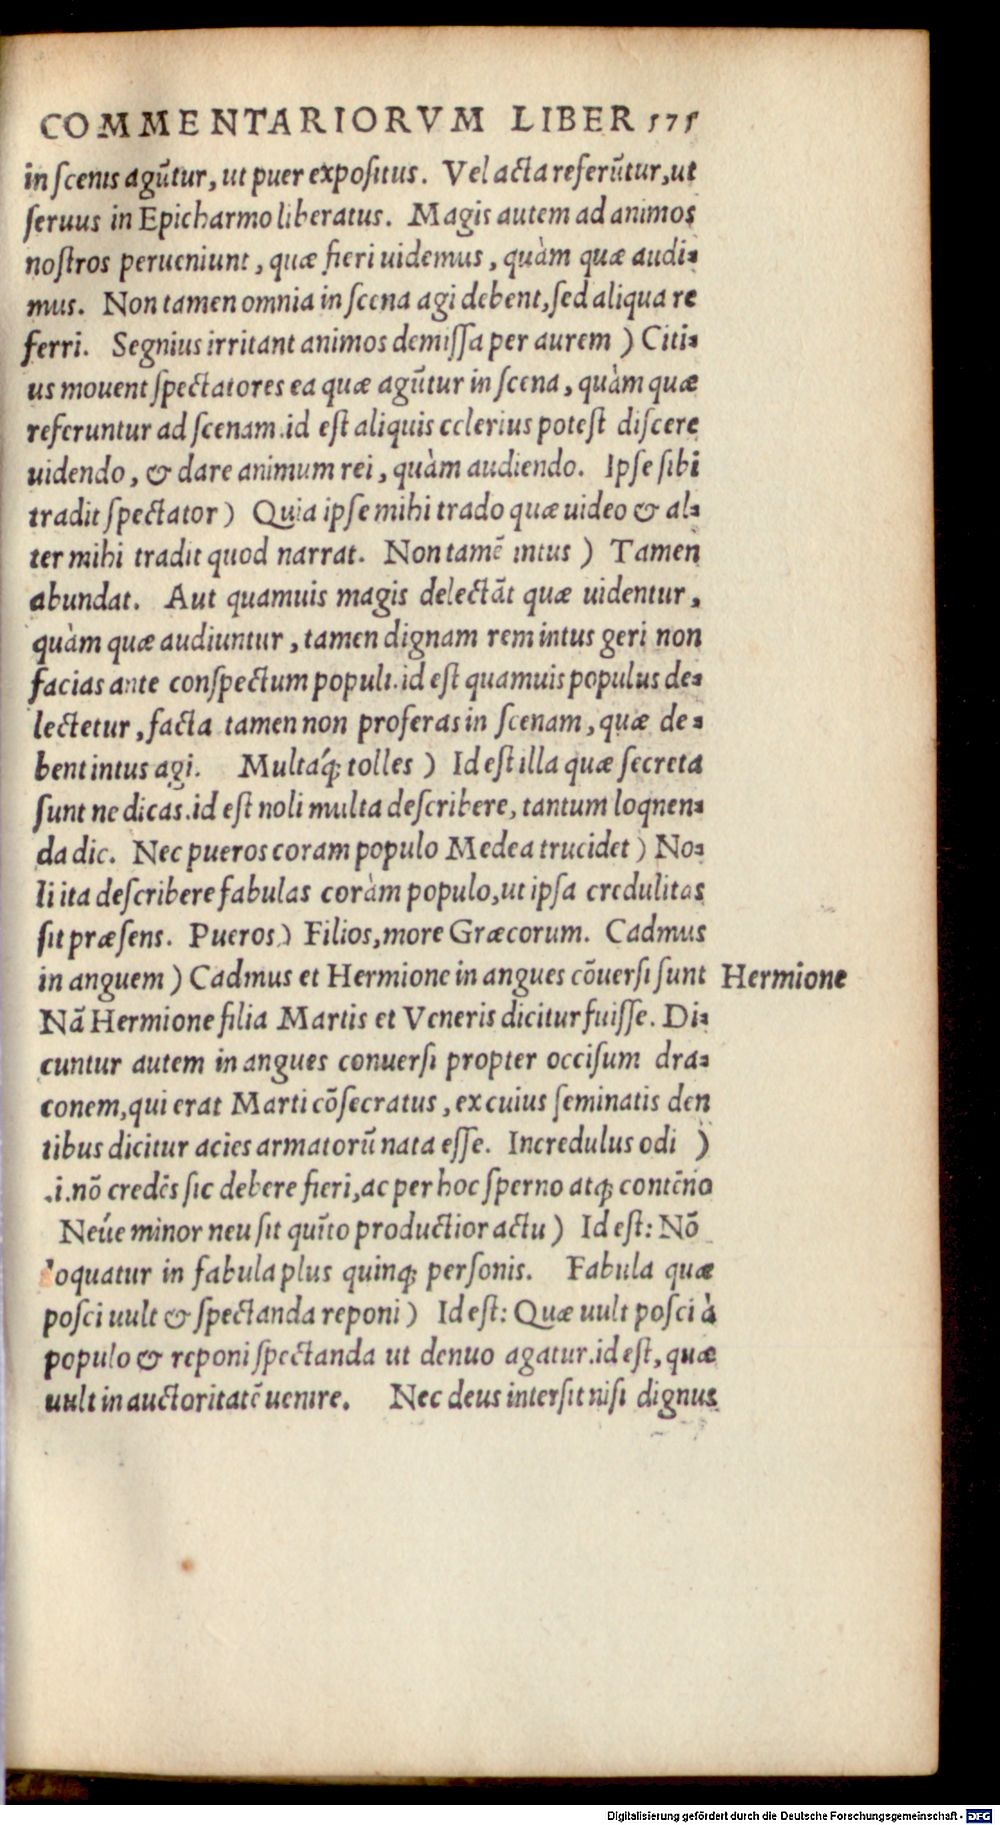 COMMENTARIORVM LIBER 575
in scenis agũtur, ut puer expositus. Vel acta referũtur, ut
seruus in Epicharmo liberatus. Magis autem ad animos
nostros perueniunt, quæ fieri uidemus, quàm quæ audi=
mus. Non tamen omnia in scena agi debent, sed aliqua re
ferri. Segnius irritant animos demissa per aurem ) Citi=
us mouent spectatores ea quæ agũtur in scena, quàm quæ
referuntur ad scenam .id est aliquis celerius potest discere
uidendo, & dare animum rei, quàm audiendo. Ipse sibi
tradit spectator ) Quia ipse mihi trado quæ uideo & al=
ter mihi tradit quod narrat. Non tamẽ intus ) Tamen
abundat. Aut quamuis magis delectãt quæ uidentur,
quàm quæ audiuntur, tamen dignam rem intus geri non
facias ante conspectum populi .id est quamuis populus de=
lectetur, facta tamen non proferas in scenam, quæ de=
bent intus agi. Multaq́; tolles ) Id est illa quæ secreta
sunt ne dicas .id est noli multa describere, tantum loqnen=
da dic. Nec pueros coram populo Medea trucidet ) No=
li ita describere fabulas coràm populo, ut ipsa credulitas
sit præsens. Pueros ) Filios, more Græcorum. Cadmus
in anguem ) Cadmus et Hermione in angues cõuersi sunt
Hermione
Nã Hermione filia Martis et Veneris dicitur fuisse. Di=
cuntur autem in angues conuersi propter occisum dra=
conem, qui erat Marti cõsecratus, ex cuius seminatis den
tibus dicitur acies armatorũ nata esse. Incredulus odi )
.i. nõ credẽs sic debere fieri, ac per hoc sperno atq; contẽno
Neúe minor neu sit quĩto productior actu ) Id est: Nõ
loquatur in fabula plus quinq; personis. Fabula quæ
posci uult & spectanda reponi ) Id est: Quæ uult posci à
populo & reponi spectanda ut denuo agatur .id est, quæ
uult in auctoritatẽ uenire. Nec deus intersit nisi dignus
Digitalisierung gefördert durch die Deutsche Forschungsgemeinschaft - DFG